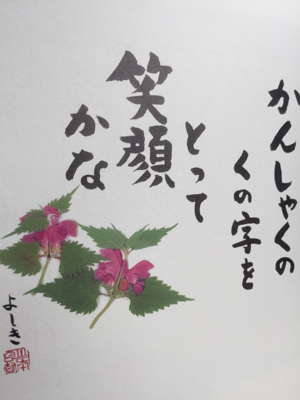 かんしゃくの
くの字を
とって
笑顔
かな
よしき